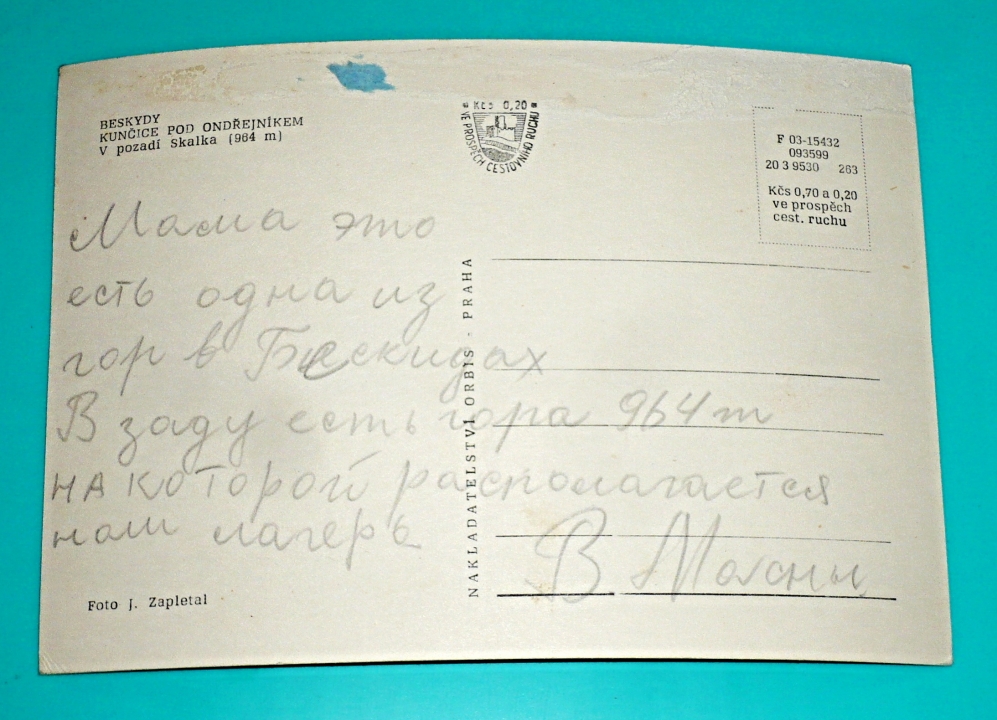 BESKYDY
KUNČICE POD ONDŘEJNÍKEM
V pozadí Skalka (964 m)
Kčs 0,20
VE PROSPĚCH CESTOVNÍHO RUCHU
F 03-15432
093599
20 3 9530 263
Kčs 0,70 a 0,20
ve prospěch
cest. ruchu
Мама это
есть одна из
гор в Бескидах
В заду есть гора 964 m
на которой располагается
наш лагерь
В.
NAKLADATELSTVÍ ORBIS - PRAHA
Foto J. Zapletal